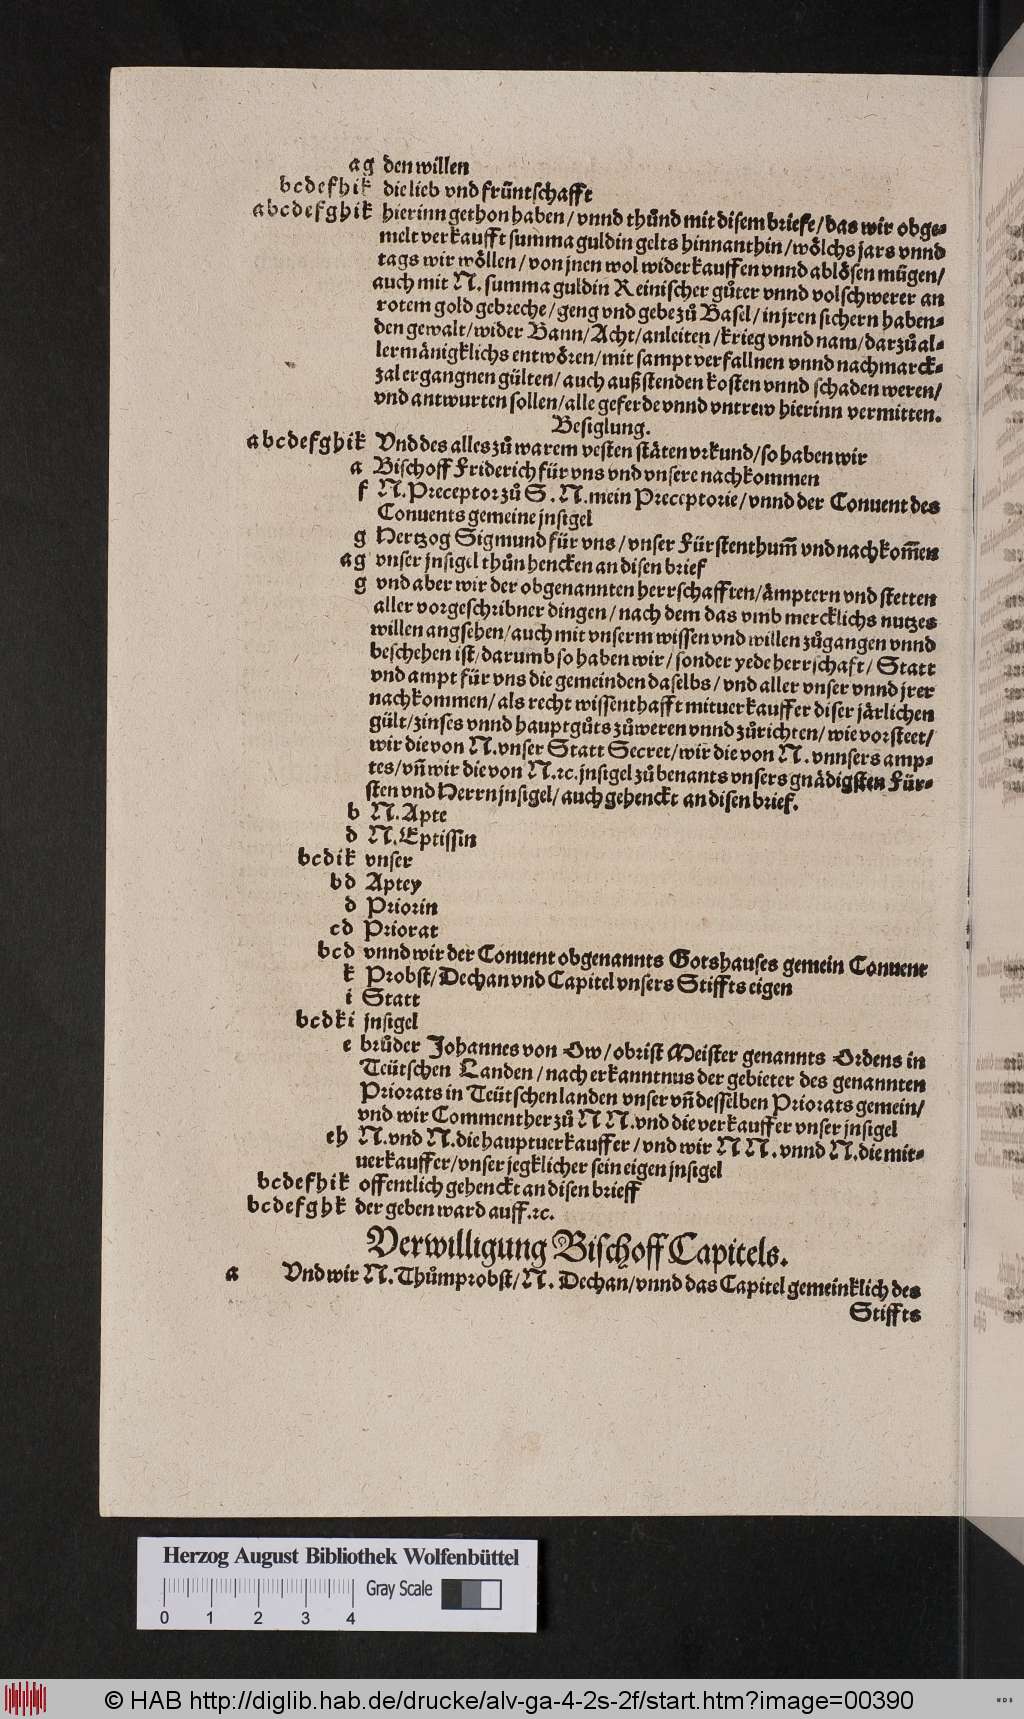 a g den willen
b c d e f h i k die lieb vnd früntschafft
a b c d e f g h i k hierinn gethon haben / vnnd thůnd mit disem briefe / das wir obge⸗
melt verkaufft summa guldin gelts hinnanthin / wölchs jars vnnd
tags wir wöllen / von jnen wol widerkauffen vnnd ablösen mügen /
auch mit N. summa guldin Reinischer gůter vnnd volschwerer an
rotem gold gebreche / geng vnd gebe zů Basel / in jren sichern haben⸗
den gewalt / wider Bann / Acht / anleiten / krieg vnnd nam / darzů al⸗
lermänigklichs entwören / mit sampt verfallnen vnnd nachmarck⸗
zal ergangnen gülten / auch außstenden kosten vnnd schaden weren /
vnd antwurten sollen / alle geferde vnnd vntrew hierinn vermitten.
Besiglung.
a b c d e f g h i k Vnd des alles zů warem vesten stäten vrkund / so haben wir
a Bischoff Friderich für vns vnd vnsere nachkommen
f N. Preceptor zů S. N. mein Preceptorie / vnnd der Conuent des
Conuents gemeine jnsigel
g Hertzog Sigmund für vns / vnser Fürstenthum̃ vnd nachkom̃en
a g vnser jnsigel thůn hencken an disen brief
g vnd aber wir der obgenannten herrschafften / ämptern vnd stetten
aller vorgeschribner dingen / nach dem das vmb mercklichs nutzes
willen angsehen / auch mit vnserm wissen vnd willen zůgangen vnnd
beschehen ist / darumb so haben wir / sonder yede herrschaft / Statt
vnd ampt für vns die gemeinden daselbs / vnd aller vnser vnnd jrer
nachkommen / als recht wissenthafft mituerkauffer diser järlichen
gült / zinses vnnd hauptgůts zůweren vnnd zůrichten / wie vorsteet /
wir die von N. vnser Statt Secret / wir die von N. vnnsers amp⸗
tes / vñ wir die von N. ꝛc. jnsigel zů benants vnsers gnädigsten Für⸗
sten vnd Herrn jnsigel / auch gehenckt an disen brief.
b N. Apte
d N. Eptissin
b c d i k vnser
b d Aptey
d Priorin
c d Priorat
b c d vnnd wir der Conuent obgenannts Gotshauses gemein Conuent
k Probst / Dechan vnd Capitel vnsers Stiffts eigen
i Statt
b c d k i jnsigel
e brůder Johannes von Ow / obrist Meister genannts Ordens in
Teütschen Landen / nach erkanntnus der gebieter des genannten
Priorats in Teütschen landen vnser vñ desselben Priorats gemein /
vnd wir Commenther zů N N. vnd die verkauffer vnser jnsigel
e h N. vnd N. die hauptuerkauffer / vnd wir N N. vnnd N. die mit⸗
uerkauffer / vnser jegklicher sein eigen jnsigel
b c d e f h i k offentlich gehenckt an disen brieff
b c d e f g h k der geben ward auff. ꝛc.
Verwilligung Bischoff Capitels.
a Vnd wir N. Thůmprobst / N. Dechan / vnnd das Capitel gemeinklich des
Stiffts
Herzog August Bibliothek Wolfenbüttel
Gray Scale
0 1 2 3 4
© HAB http://diglib.hab.de/drucke/alv-ga-4-2s-2f/start.htm?image=00390